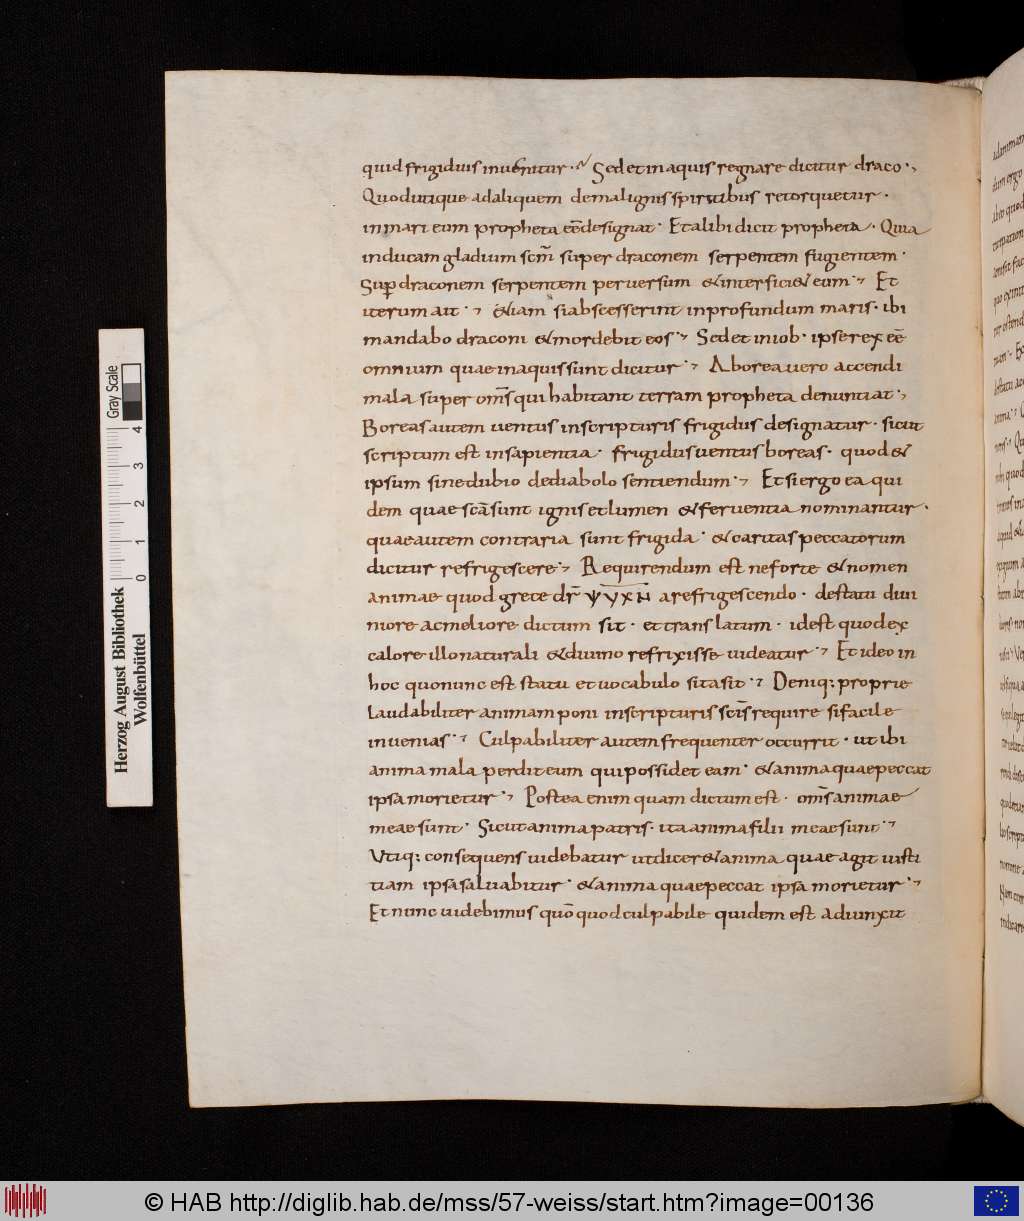 quid frigidius invenitur. Sed et in aquis regnare dicitur draco.
Quod utique ad aliquem de malignis spiritibus retorquetur.
in mari eum propheta eē designat. Et alibi dicit propheta. Quia
inducam gladium scm̄ super draconem serpentem fugientem.
Sup draconem serpentem perversum & interfici& eum. Et
iterum ait. &iam si abscesserint in profundum maris. ibi
mandabo draconi & mordebit eos. Sed et in iob. ipse rex eē
omnium quae in aquis sunt dicitur. A borea uero accendi
mala super om̄s qui habitant terram propheta denuntiat.
Boreas autem uentus in scripturis frigidus designatur. sicut
scriptum est in sapientia. frigidus uentus boreas. quod &
ipsum sine dubio de diabolo sentiendum. Et si ergo ea qui
dem quae scā sunt ignis et lumen & feruentia nominantur.
quae autem contraria sunt frigida. & caritas peccatorum
dicitur refrigescere. Requirendum est ne forte & nomen
animae quod grece dr̄ ψΥΧΗ a refrigescendo. de statu diui
niore ac meliore dictum sit. et translatum. id est quod ex
calore illo naturali & diuino refrixisse uideatur. Et ideo in
hoc quo nunc est statu et uocabulo sita sit. Deniq: proprie
laudabiliter animam poni in scripturis scīs require si facile
inuenias. Culpabiliter autem frequenter occurrit. ut ibi
anima mala perdit eum qui possidet eam. & anima quae peccat
ipsa morietur. Postea enim quam dictum est. om̄s animae
meae sunt. Sicut anima patris. ita anima filii meae sunt.
Utiq: consequens uidebatur ut dicer& anima quae agit iusti
tiam ipsa saluabitur. & anima quae peccat ipsa morietur.
Et nunc uidebimus quō quod culpabile quidem est adiunxit
Gray Scale
0 1 2 3 4
Herzog August Bibliothek
Wolfenbüttel
© HAB http://diglib.hab.de/mss/57-weiss/start.htm?image=00136